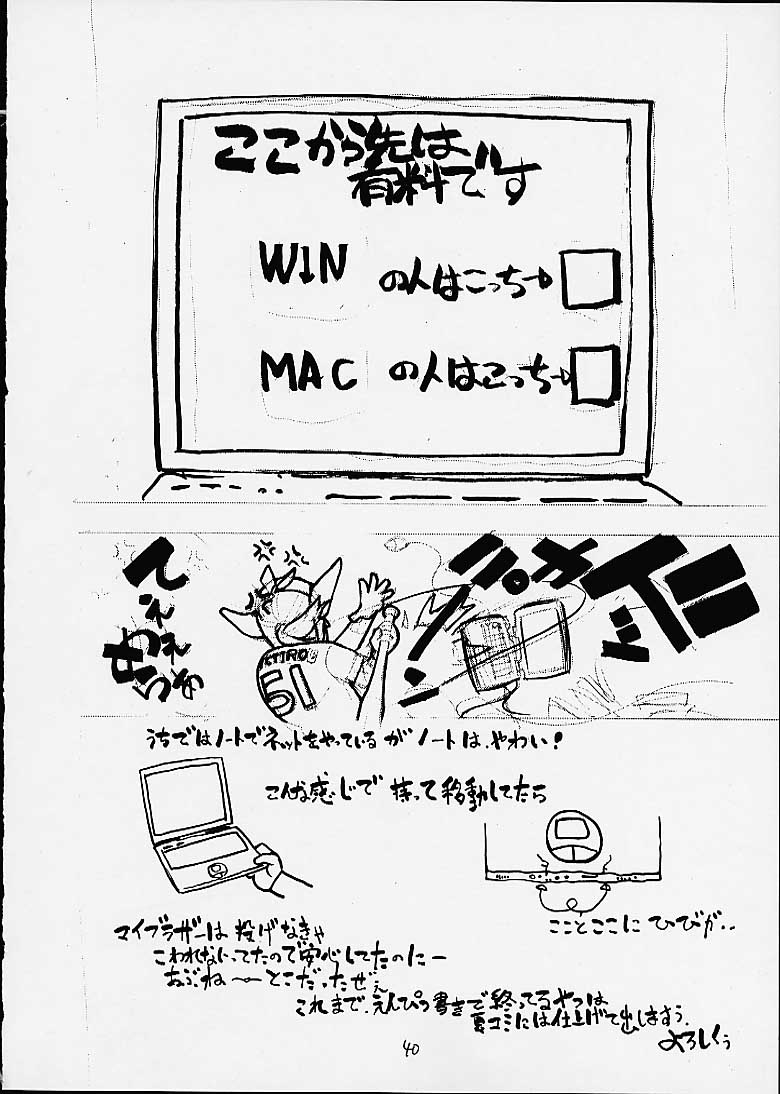 ここから先は
有料です
WIN の人はこっち→
MAC の人はこっち→
てめえれぇ
パカッ!
ICTIRO
51
うちではノートでネットをやっているがノートは、やわい!
こんな感じで 持って移動してたら
こことここに ひびが‥
マイブラザーは 投げなきゃ
こわれないってたので安心してたのにー
あぶね〜とこだったぜぇ
これまで、えんぴつ書きで終ってるやつは
夏コミには仕上げて出しますぅ.
よろしくぅ
40